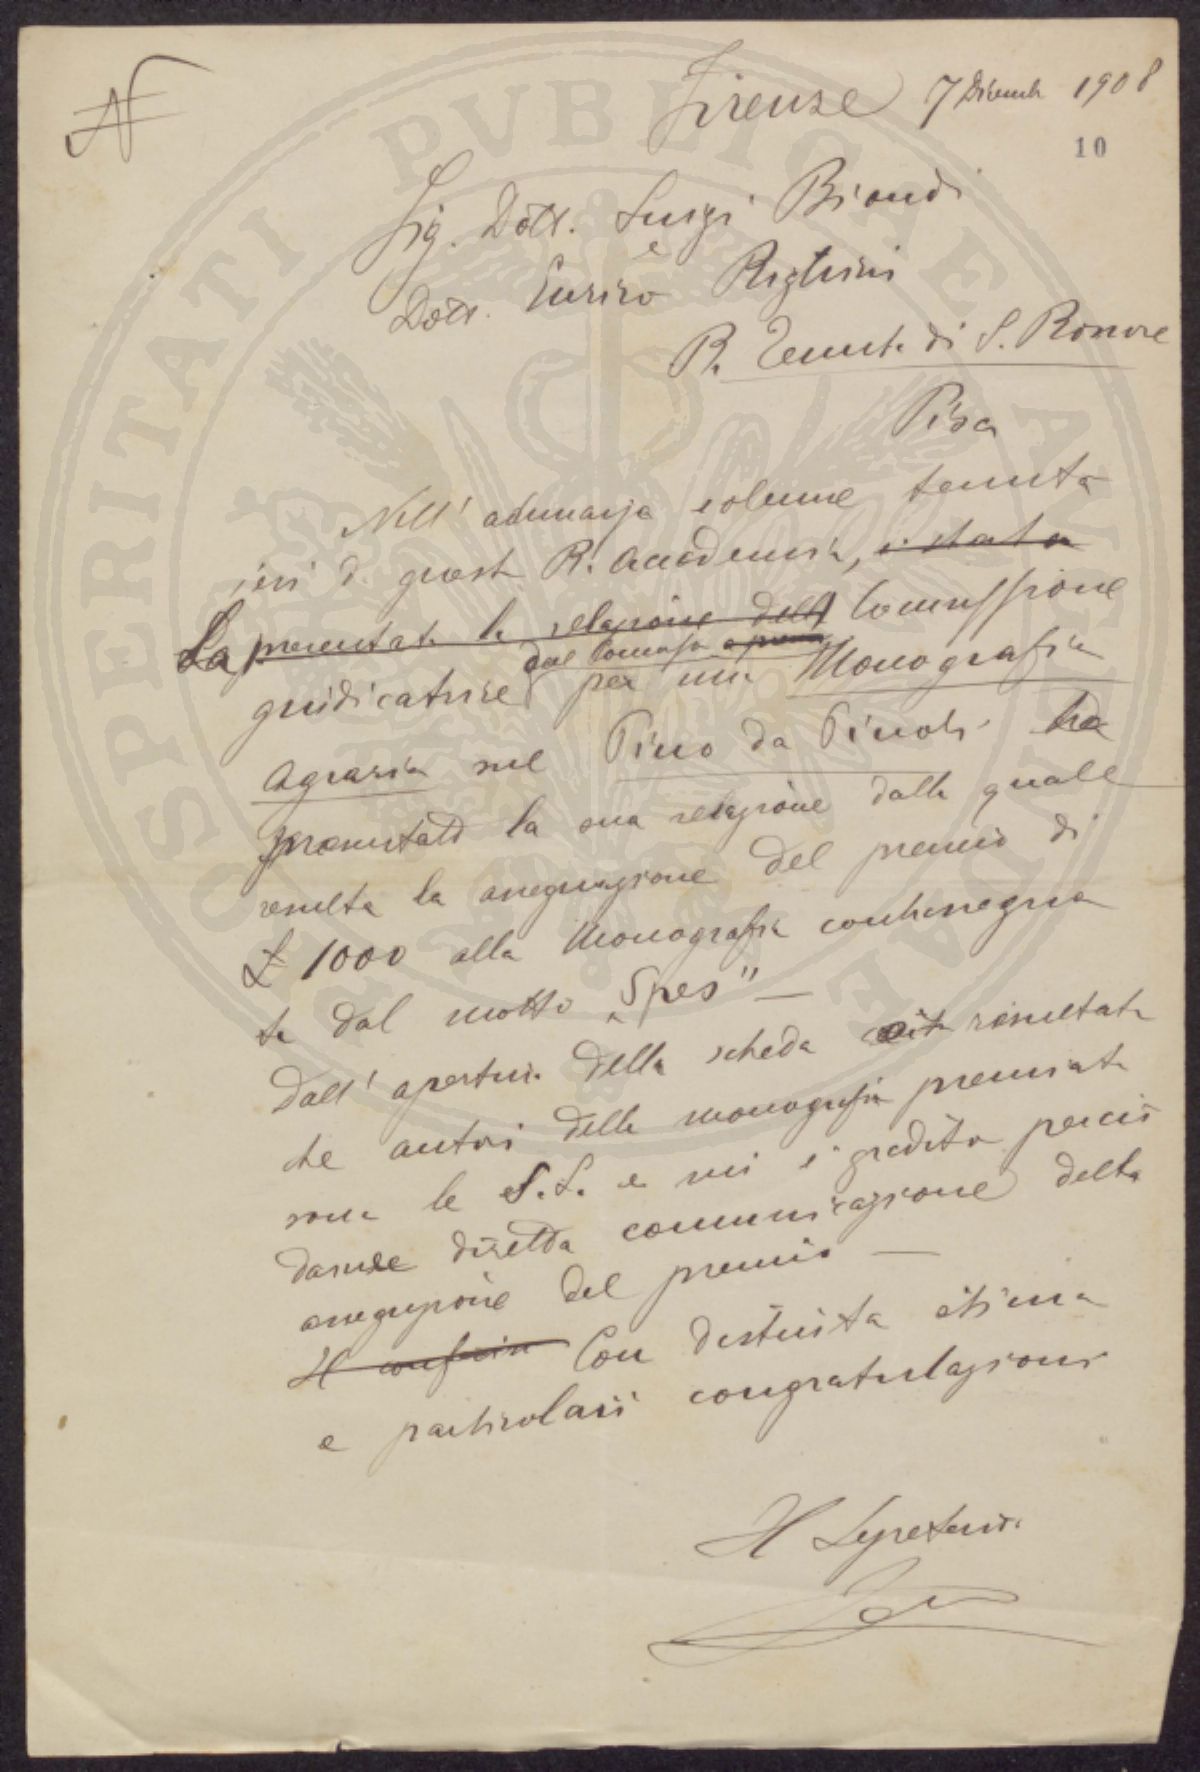 Firenze 7 Dicembre 1908
10
Sig. Dott. Luigi Biondi
e
Dott. Enrico Righini
R. Tenuta di S. Rossore
Pisa
Nell' adunanza solenne tenuta
ieri da questa R. Accademia, è stata
La presentata la relazione della Commissione
del Concorso a premi
giudicatrice per una Monografia
Agraria sul Pino da Pinoli ha
presentato la sua relazione dalla quale
resulta la assegnazione del premio di
£ 1000 alla Monografia contrassegna
ta dal motto „Spes" —
Dall' apertura della scheda è resultato
che autori della monografia premiata
sono le S.S. e mi è gradito perciò
darne diretta comunicazione della
assegnazione del premio —
Il Con distinta stima
e particolari congratulazioni
Il Segretario
PROSPERITATI PVBLICAE AVGENDAE